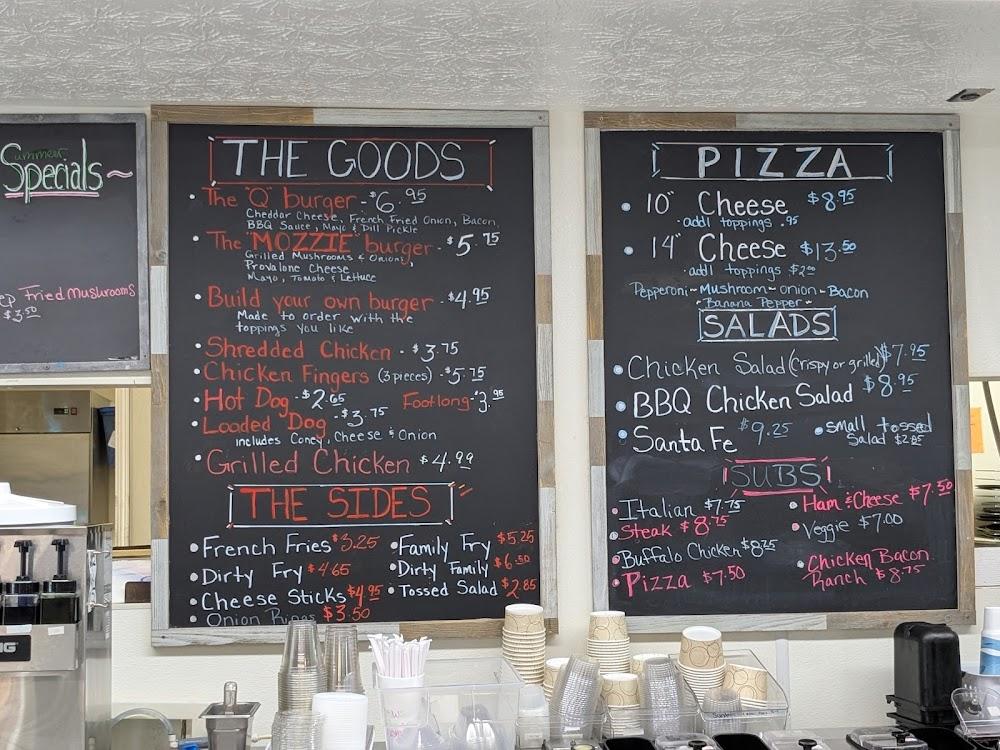 Summer
Specials
Fried Mushrooms
$3.50
THE GOODS
The "Q" burger - $6.95
Cheddar Cheese, French Fried Onion, Bacon,
BBQ Sauce, Mayo & Dill Pickle
The "MOZZIE" burger - $5.75
Grilled Mushrooms & Onions,
Provalone Cheese
Mayo, Tomato & Lettuce
Build your own burger - $4.95
Made to order with the
toppings you like
Shredded Chicken - $3.75
Chicken Fingers (3 pieces) - $5.75
Hot Dog - $2.65 Footlong - $3.95
Loaded Dog - $3.75
includes Coney, Cheese & Onion
Grilled Chicken $4.99
THE SIDES
French Fries $3.25
Dirty Fry $4.65
Cheese Sticks $4.95
Onion Rings $3.50
Family Fry $5.25
Dirty Family $6.50
Tossed Salad $2.85
PIZZA
10" Cheese $8.95
addl toppings .95
14" Cheese $13.50
addl toppings $2.00
Pepperoni ~ Mushroom ~ onion ~ Bacon
~ Banana Pepper ~
SALADS
Chicken Salad (crispy or grilled) $7.95
BBQ Chicken Salad $8.95
Santa Fe $9.25
small tossed
Salad $2.85
SUBS
Italian $7.75
Steak $8.75
Buffalo Chicken $8.75
Pizza $7.50
Ham & Cheese $7.50
Veggie $7.00
Chicken Bacon
Ranch $8.75